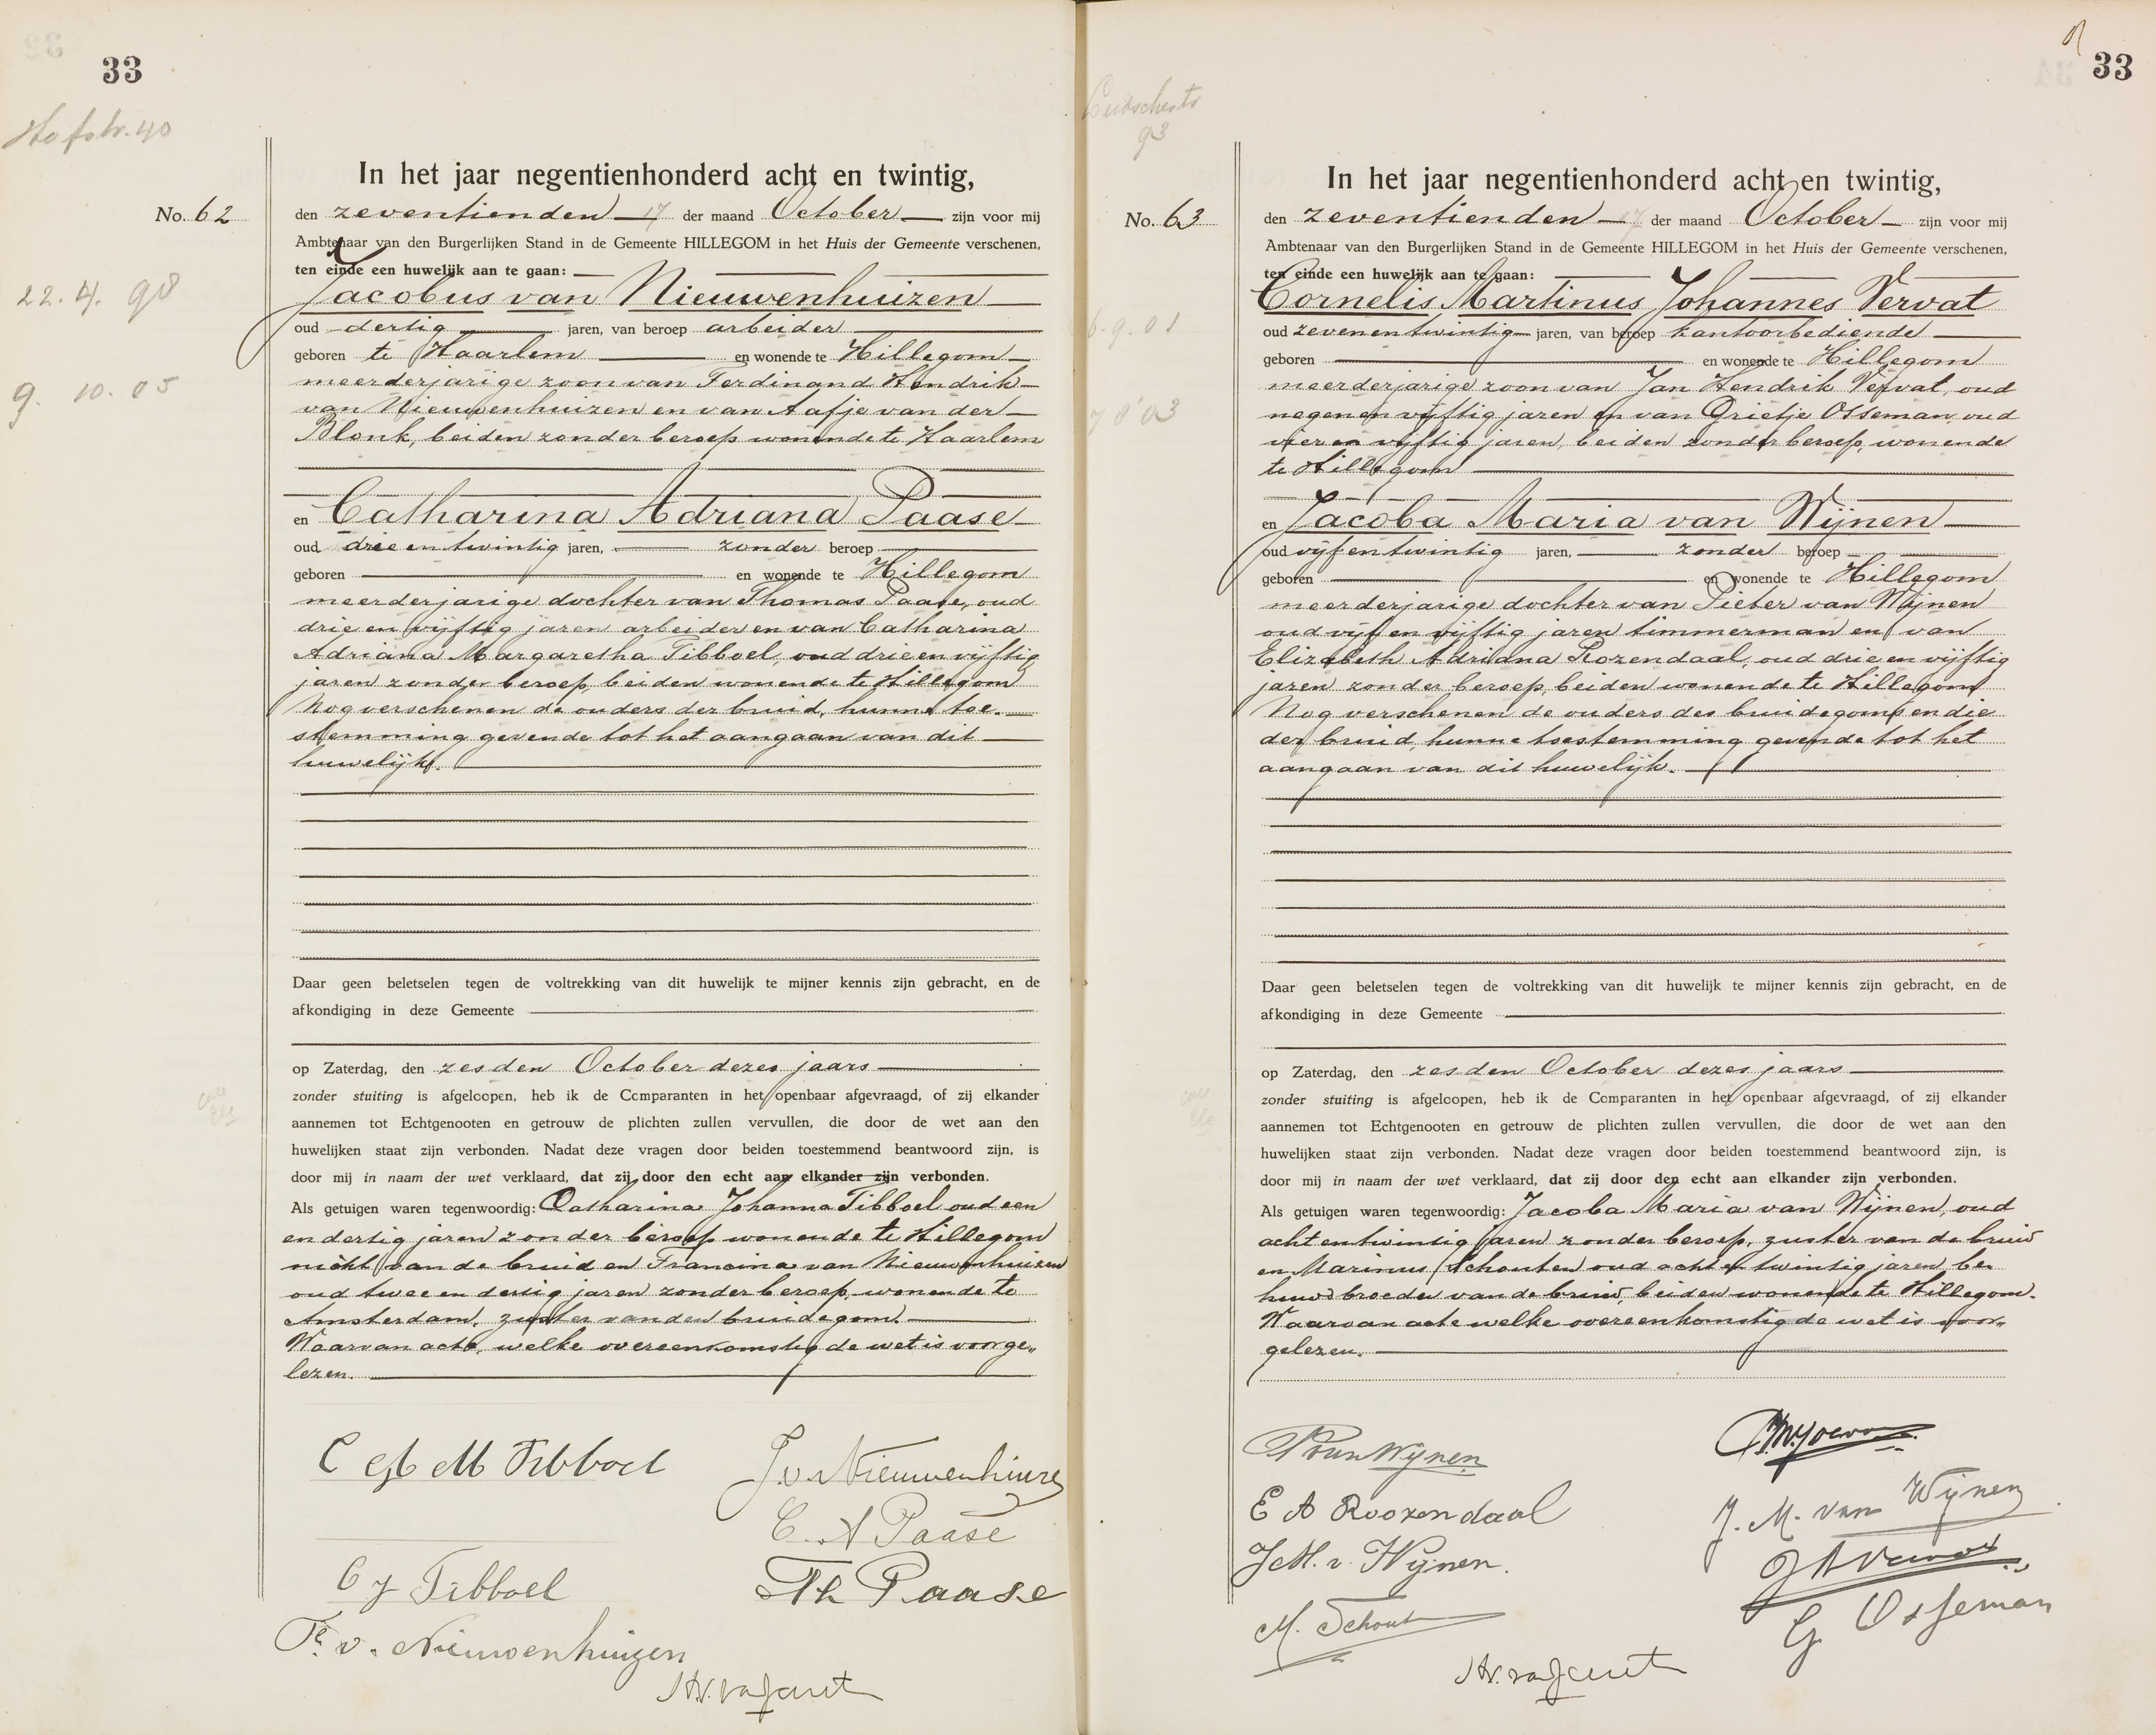 33
Hofstr. 40
In het jaar negentienhonderd acht en twintig,
No. 62
den zeventienden 17 der maand October zijn voor mij
Ambtenaar van den Burgerlijken Stand in de Gemeente HILLEGOM in het Huis der Gemeente verschenen,
ten einde een huwelijk aan te gaan:
22. 4. 98
Jacobus van Nieuwenhuizen
oud dertig jaren, van beroep arbeider
geboren te Haarlem en wonende te Hillegom
9. 10. 05
meerderjarige zoon van Ferdinand Hendrik
van Nieuwenhuizen en van Aafje van der
Blonk, beiden zonder beroep wonende te Haarlem
en Catharina Adriana Paase
oud drie en twintig jaren, zonder beroep
geboren en wonende te Hillegom
meerderjarige dochter van Thomas Paase, oud
drie en vijftig jaren arbeider en van Catharina
Adriana Margaretha Tibboel, oud drie en vijftig
jaren zonder beroep, beiden wonende te Hillegom
Nog verschenen de ouders der bruid, hunne toe-
stemming gevende tot het aangaan van dit
huwelijk.
Daar geen beletselen tegen de voltrekking van dit huwelijk te mijner kennis zijn gebracht, en de
afkondiging in deze Gemeente
op Zaterdag, den zesden October dezes jaars
zonder stuiting is afgeloopen, heb ik de Comparanten in het openbaar afgevraagd, of zij elkander
aannemen tot Echtgenooten en getrouw de plichten zullen vervullen, die door de wet aan den
huwelijken staat zijn verbonden. Nadat deze vragen door beiden toestemmend beantwoord zijn, is
door mij in naam der wet verklaard, dat zij door den echt aan elkander zijn verbonden.
Als getuigen waren tegenwoordig: Catharina Johanna Tibboel oud een
en dertig jaren zonder beroep wonende te Hillegom
nicht van de bruid en Francina van Nieuwenhuizen
oud twee en dertig jaren zonder beroep, wonende te
Amsterdam, zuster van den bruidegom.
Waarvan acte, welke overeenkomstig de wet is voorge„
lezen.
C A M Tibboel
J. v. Nieuwenhuize
C. A Paase
C J Tibboel
Th Paase
Fr. v. Nieuwenhuizen
33
93
In het jaar negentienhonderd acht en twintig,
No. 63
den zeventienden 17 der maand October zijn voor mij
Ambtenaar van den Burgerlijken Stand in de Gemeente HILLEGOM in het Huis der Gemeente verschenen,
ten einde een huwelijk aan te gaan:
Cornelis Martinus Johannes Vervat
6. 9. 01
oud zevenentwintig jaren, van beroep kantoorbediende
geboren en wonende te Hillegom
meerderjarige zoon van Jan Hendrik Vervat, oud
7 8 03
negen en vijftig jaren en van Grietje Osseman, oud
vier en vijftig jaren, beiden zonder beroep, wonende
te Hillegom
en Jacoba Maria van Wijnen
oud vijf en twintig jaren, zonder beroep
geboren en wonende te Hillegom
meerderjarige dochter van Pieter van Wijnen
oud vijf en vijftig jaren timmerman en van
Elizabeth Adriana Rozendaal, oud drie en vijftig
jaren zonder beroep, beiden wonende te Hillegom
Nog verschenen de ouders des bruidegoms en die
der bruid, hunne toestemming gevende tot het
aangaan van dit huwelijk.
Daar geen beletselen tegen de voltrekking van dit huwelijk te mijner kennis zijn gebracht, en de
afkondiging in deze Gemeente
op Zaterdag, den zesden October dezes jaars
zonder stuiting is afgeloopen, heb ik de Comparanten in het openbaar afgevraagd, of zij elkander
aannemen tot Echtgenooten en getrouw de plichten zullen vervullen, die door de wet aan den
huwelijken staat zijn verbonden. Nadat deze vragen door beiden toestemmend beantwoord zijn, is
door mij in naam der wet verklaard, dat zij door den echt aan elkander zijn verbonden.
Als getuigen waren tegenwoordig: Jacoba Maria van Wijnen, oud
acht en twintig jaren zonder beroep, zuster van de bruid
en Marinus Schouten oud acht en twintig jaren be
huwd broeder van de bruid, beiden wonende te Hillegom.
Waarvan acte welke overeenkomstig de wet is voor„
gelezen.
P van Wijnen
E A Roozendaal
J. M. van Wijnen
J M. v. Wijnen.
J H Vervat
M. Schout
G Osseman